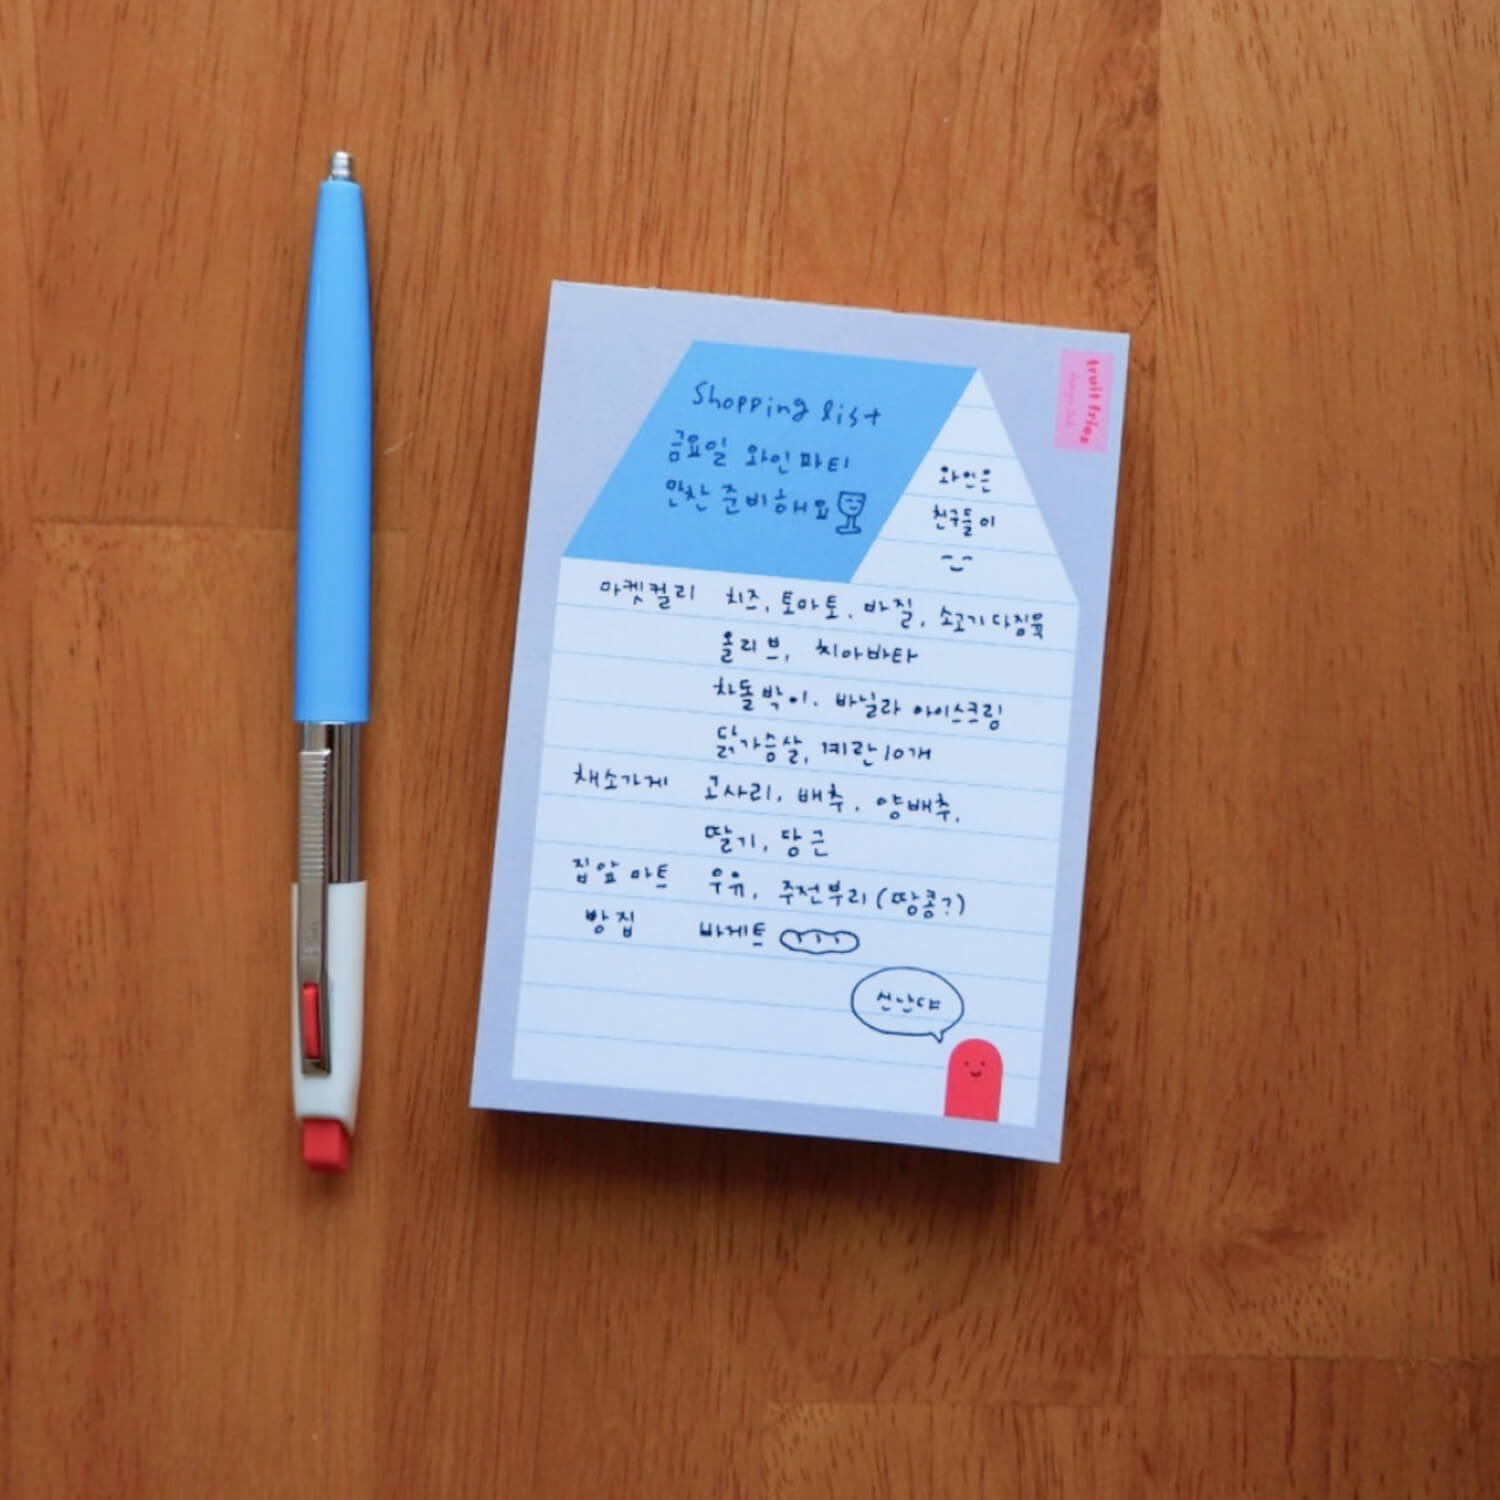 Shopping list
금요일 와인파티
만찬 준비해요
와인은
친구들이
마켓컬리 치즈, 토마토, 바질, 소고기 다짐육
올리브, 치아바타
차돌박이, 바닐라 아이스크림
닭가슴살, 계란 10개
채소가게 고사리, 배추, 양배추,
딸기, 당근
집앞 마트 우유, 주전부리 (땅콩?)
빵집 바게트
신난다
fruit fries